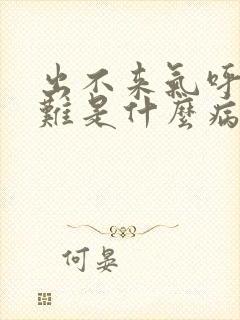 出不来氣呼
難是什麼病
何晏